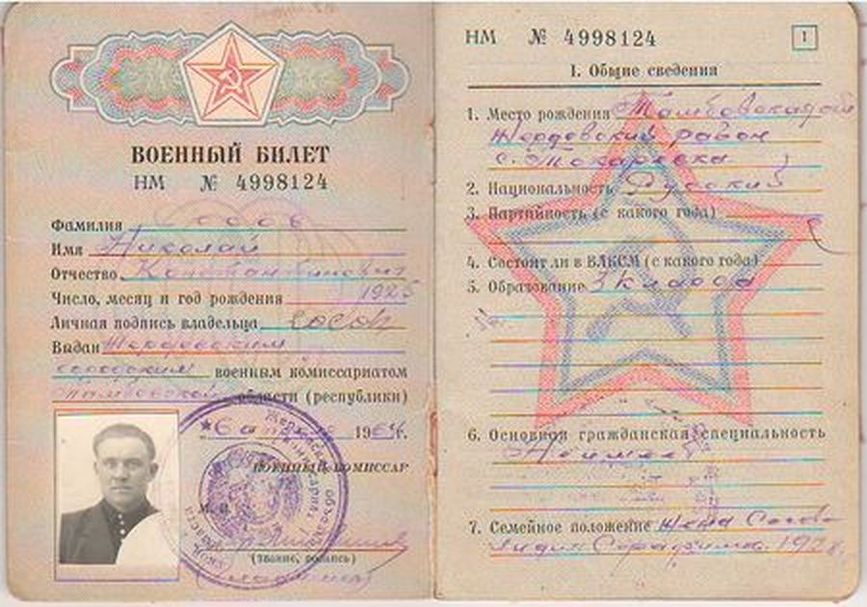 ВОЕННЫЙ БИЛЕТ
НМ № 4998124
Фамилия Сосов
Имя Николай
Отчество Константинович
Число, месяц и год рождения 1925
Личная подпись владельца Сосов
Выдан Жердевским
военным комиссариатом
Тамбовской области (республики)
196
ВОЕННЫЙ КОМИССАР
М. П.
(звание, подпись)
НМ № 4998124
1
I. Общие сведения
1. Место рождения Тамбовская
Жердевский район
с. Токаревка
2. Национальность Русский
3. Партийность (с какого года)
4. Состоит ли в ВЛКСМ (с какого года)
5. Образование 3 класса
6. Основная гражданская специальность
7. Семейное положение жена Сосова
Лидия